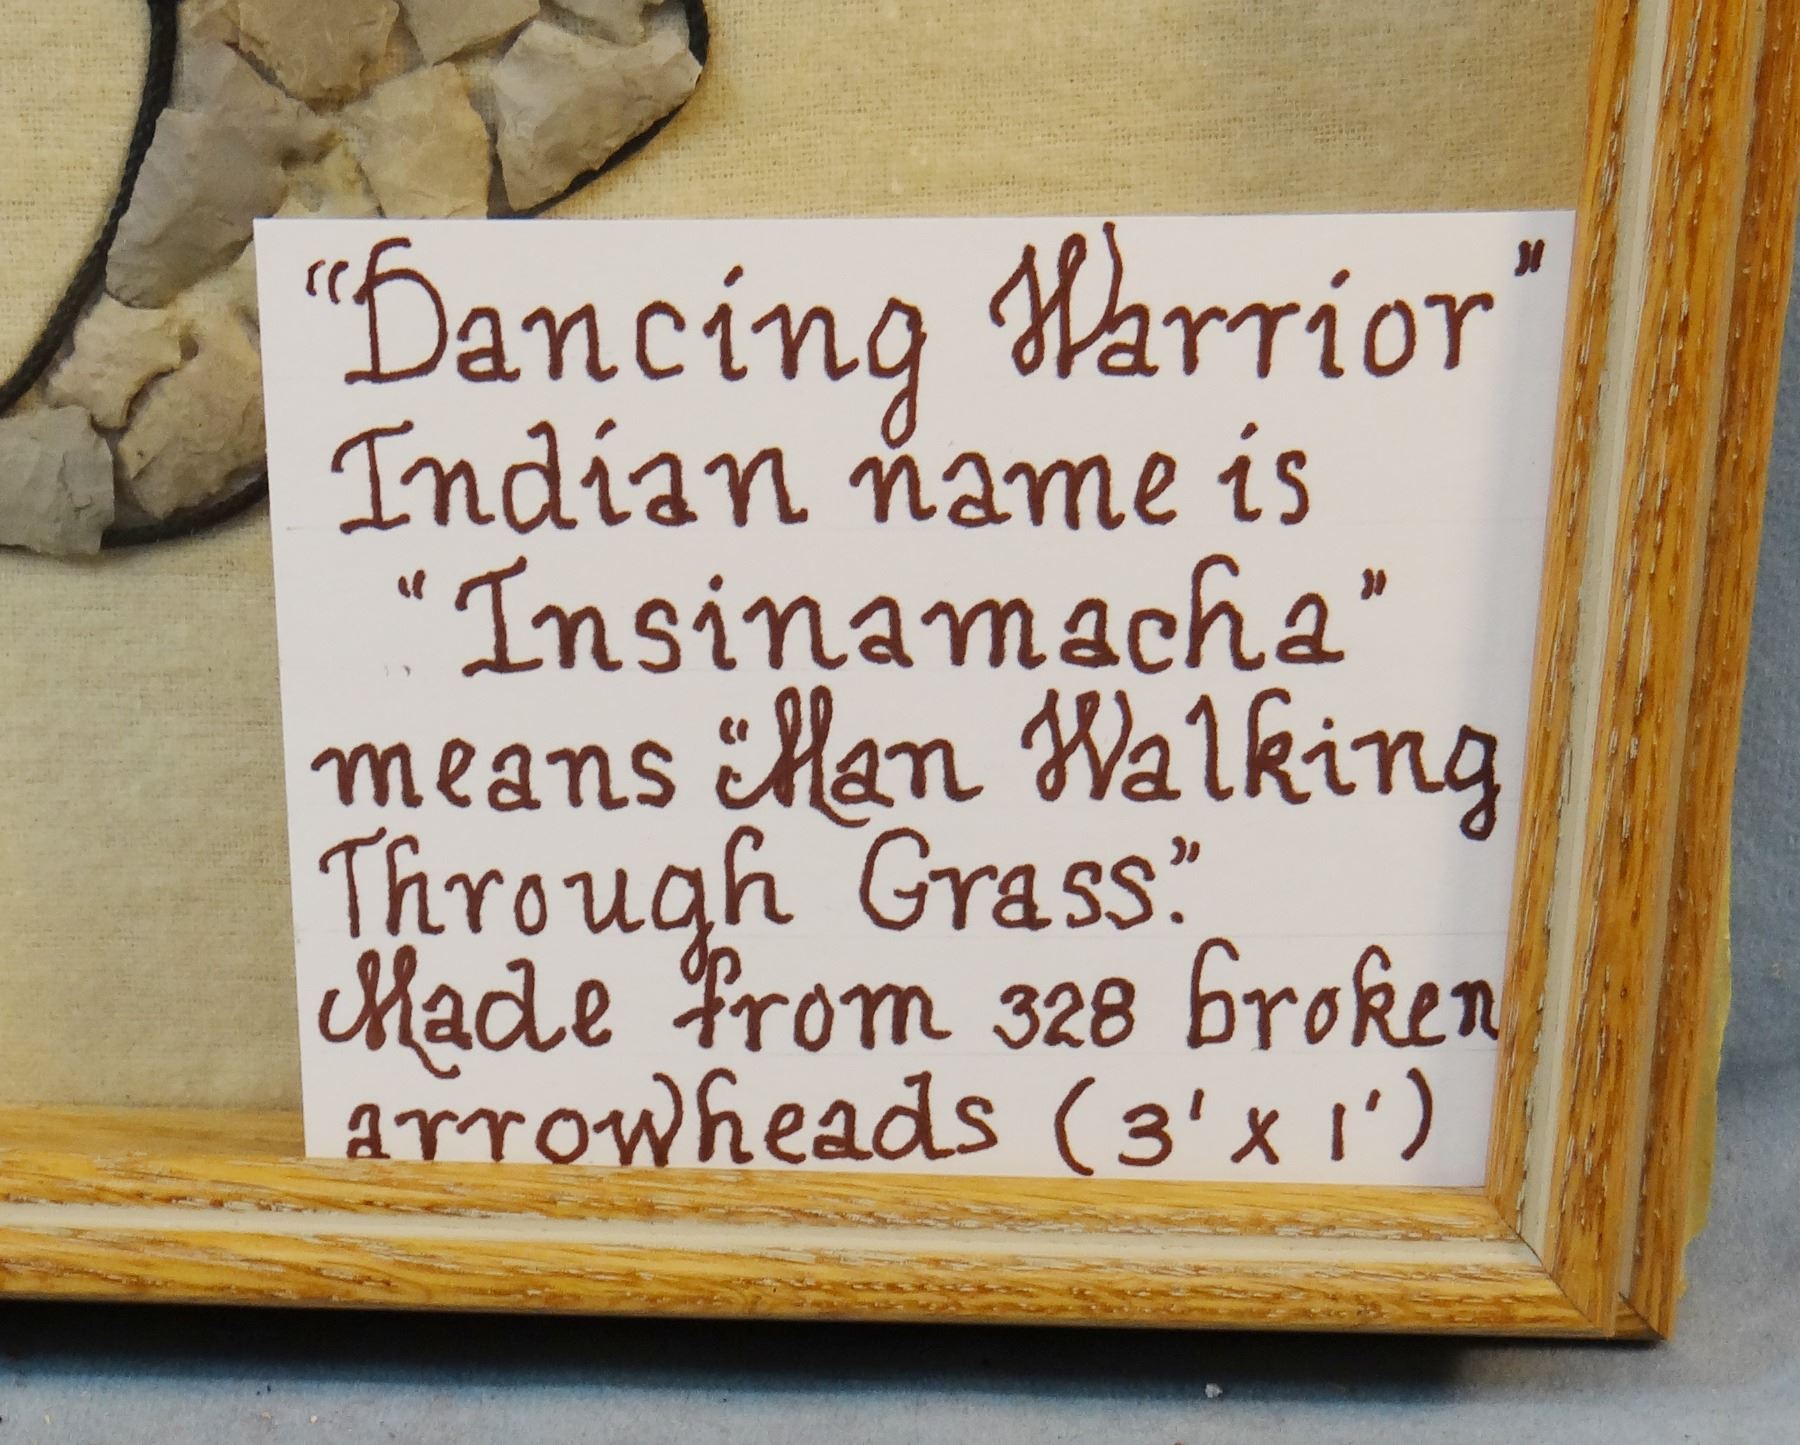 "Dancing Warrior"
Indian name is
"Insinamacha"
means "Man Walking
Through Grass."
Made from 328 broken
arrowheads (3' x 1')